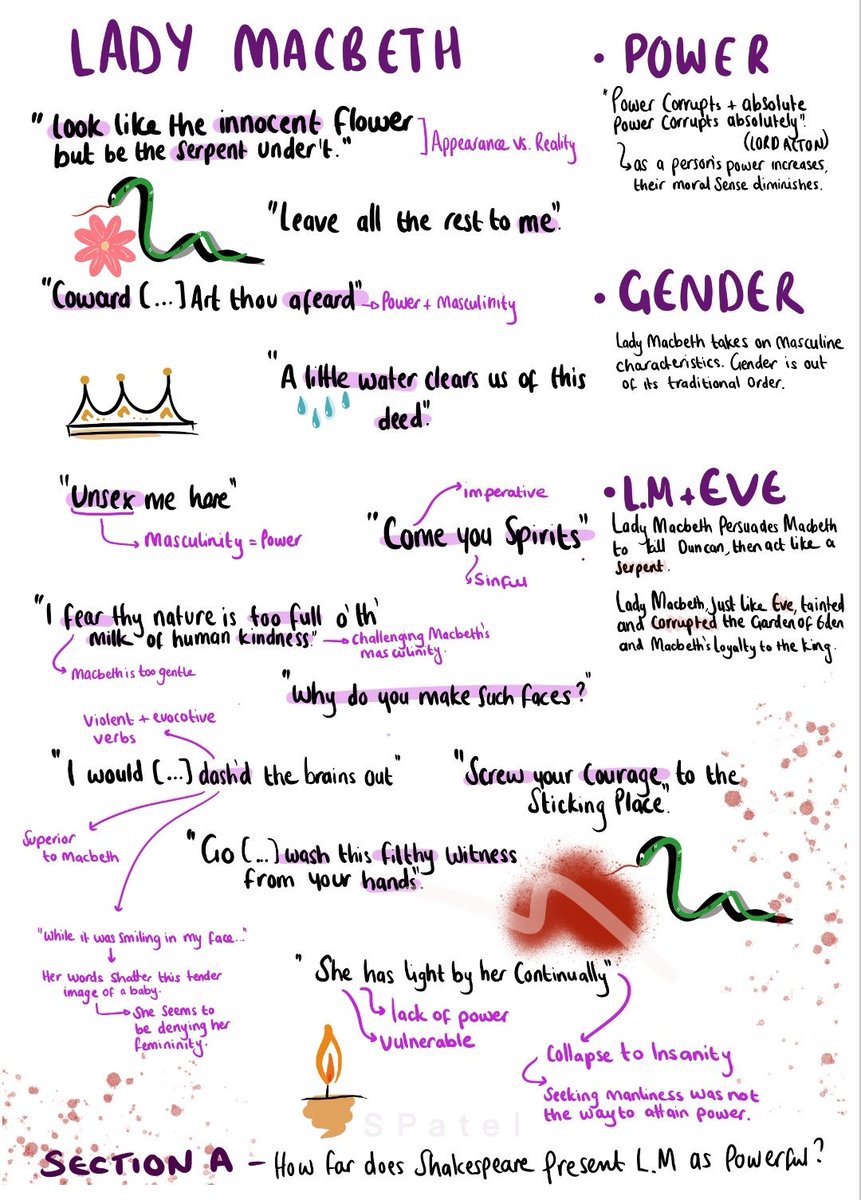 LADY MACBETH
"Look like the innocent flower
but be the serpent under't."
Appearance vs. Reality
"Leave all the rest to me".
"Coward [...] Art thou afeard"
Power + Masculinity
"A little water clears us of this
deed".
"Unsex me here"
Masculinity = Power
imperative
"Come you Spirits"
Sinful
"I fear thy nature is too full o'th'
milk of human kindness."
challenging Macbeth's
masculinity.
Macbeth is too gentle
"Why do you make such faces?"
Violent + evocotive
verbs
"I would [...] dash'd the brains out"
"Screw your courage to the
Sticking Place".
Superior
to Macbeth
"Go [...] wash this filthy witness
from your hands".
"While it was smiling in my face..."
Her words shatter this tender
image of a baby.
She seems to
be denying her
femininity.
"She has light by her Continually"
lack of power
Vulnerable
Collapse to Insanity
Seeking manliness was not
the way to attain power.
• POWER
"Power Corrupts + absolute
Power Corrupts absolutely".
(LORD ACTON)
as a person's power increases,
their moral sense diminishes.
• GENDER
Lady Macbeth takes on Masculine
characteristics. Gender is out
of its traditional order.
• L.M + EVE
Lady Macbeth Persuades Macbeth
to kill Duncan, then act like a
serpent.
Lady Macbeth, just like Eve, tainted
and corrupted the Garden of Eden
and Macbeth's loyalty to the king.
SPatel
SECTION A – How far does Shakespeare present L.M as Powerful?